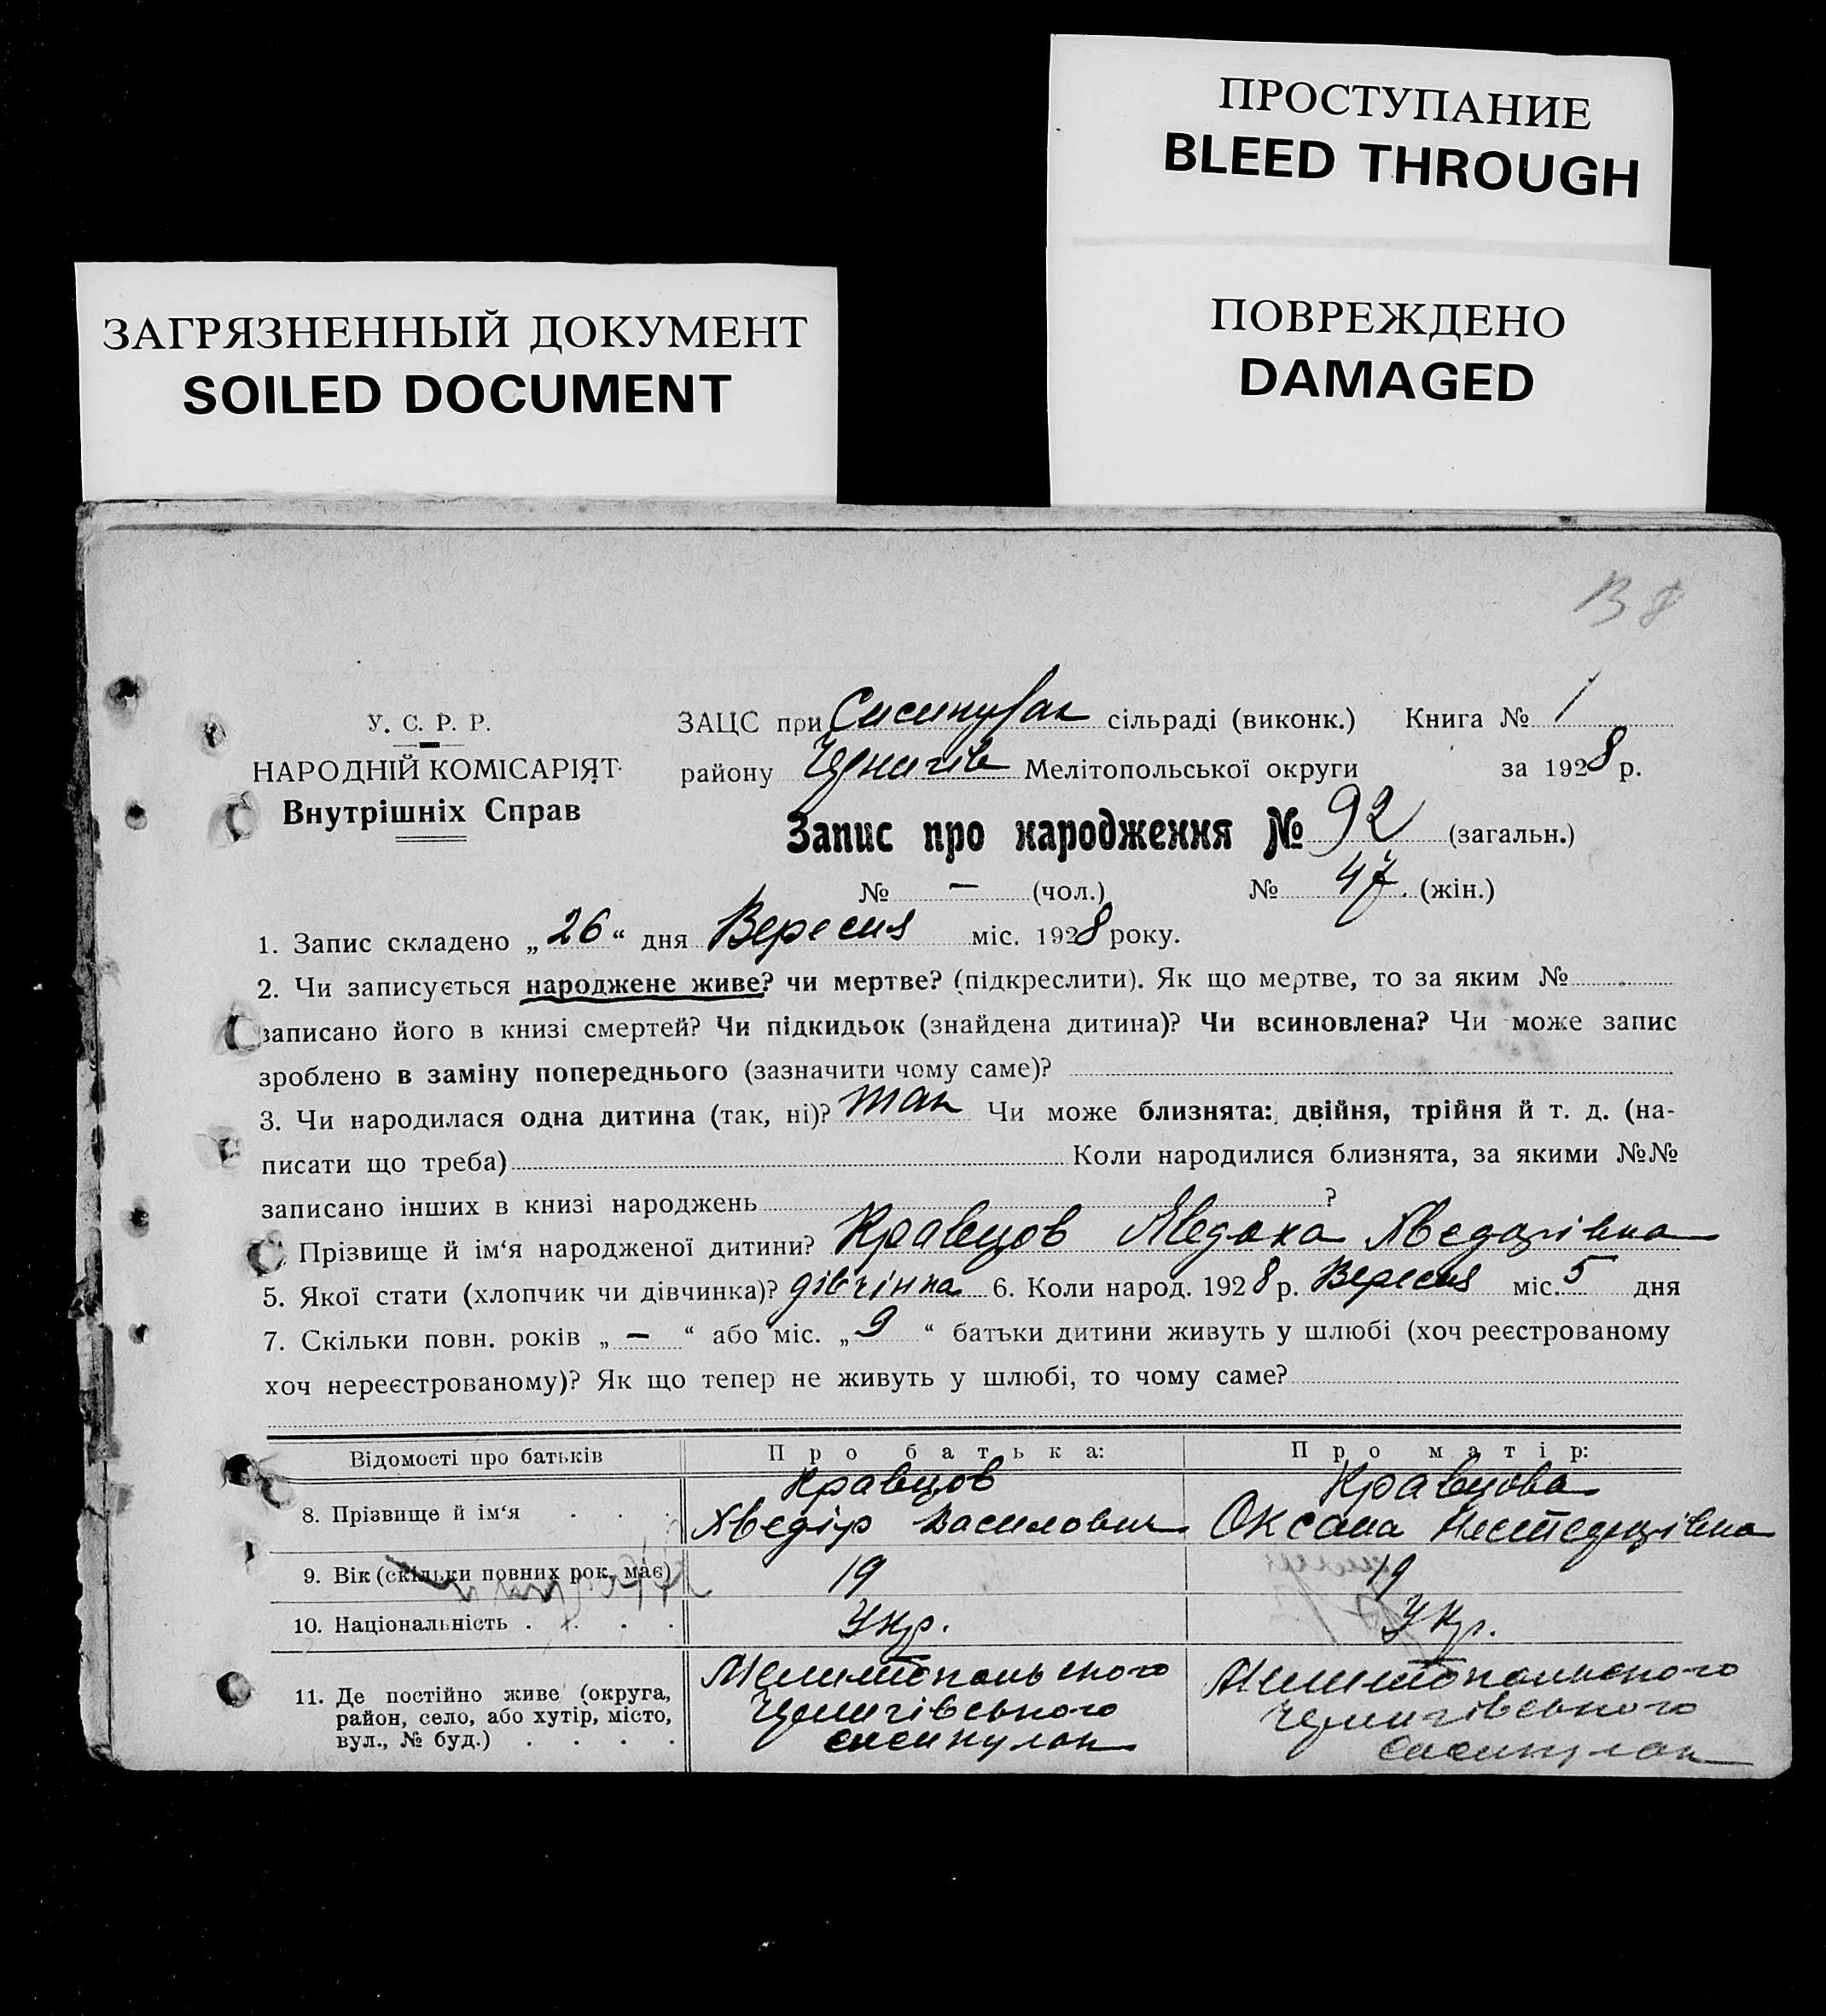 ПРОСТУПАНИЕ
BLEED THROUGH
ЗАГРЯЗНЕННЫЙ ДОКУМЕНТ
SOILED DOCUMENT
ПОВРЕЖДЕНО
DAMAGED
У. С. Р. Р.
НАРОДНІЙ КОМІСАРІЯТ
Внутрішніх Справ
ЗАЦС при сільраді (виконк.) Книга № 1
району Мелітопольської округи за 1928 р.
Запис про народження № 92 (загальн.)
№ — (чол.) № 47 (жін.)
1. Запис складено „26“ дня Вересня міс. 1928 року.
2. Чи записується народжене живе? чи мертве? (підкреслити). Як що мертве, то за яким №
записано його в книзі смертей? Чи підкидьок (знайдена дитина)? Чи всиновлена? Чи може запис
зроблено в заміну попереднього (зазначити чому саме)?
3. Чи народилася одна дитина (так, ні)? так Чи може близнята: двійня, трійня й т. д. (на-
писати що треба) Коли народилися близнята, за якими №№
записано інших в книзі народжень ?
Прізвище й ім‘я народженої дитини? Кравцов Явдоха Хведорівна
5. Якої стати (хлопчик чи дівчинка)? дівчінка 6. Коли народ. 1928 р. Вересня міс. 5 дня
7. Скільки повн. років „—“ або міс. „9“ батьки дитини живуть у шлюбі (хоч реєстрованому
хоч нереєстрованому)? Як що тепер не живуть у шлюбі, то чому саме?
Відомості про батьків Про батька: Про матір:
Кравцов Кравцова
8. Прізвище й ім‘я . . . Хведір Василович Оксана
9. Вік (скільки повних рок. має) 19 19
10. Національність . . . . Укр. Укр.
Мелитопольского Мелитопольского
11. Де постійно живе (округа,
район, село, або хутір, місто,
вул., № буд.) . . . .